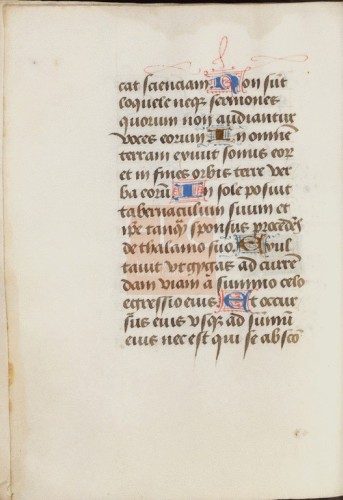 cat scienciam. Non sūt
loquele neqȝ sermones
quorum non audiantur
voces eorum In omnem
terram exivit sonus eorꝝ
et in fines orbis terre ver
ba eorū In sole posuit
tabernaculum suum et
ip̄e tanqȝ sponsus procedēs
de thalamo suo. Exul
tavit vt gygas ad curren
dam viam a summo celo
egressio eius Et occur
sus eius vsqȝ ad sūmū
eius nec est qui se abscō